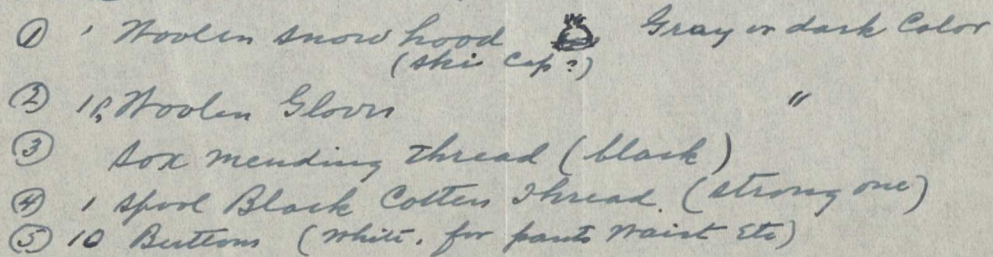 ① 1 Woolen snow hood Gray or dark Color
(ski cap?)
② 1 P. Woolen Gloves "
③ Sox mending thread (black)
④ 1 spool Black Cotten Thread. (strong one)
⑤ 10 Buttons (White. for pants Waist Etc)